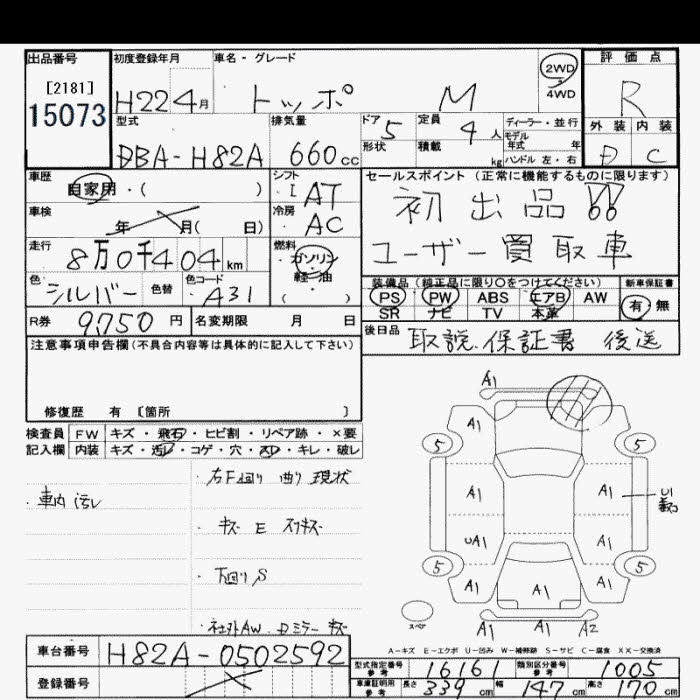 出品番号
[2181]
15073
初度登録年月
H22 4月
車名・グレード
トッポ M
2WD
4WD
評価点
R
外装 内装
D C
型式
DBA-H82A
排気量
660cc
ドア 5
形状
定員 4人
積載 kg
ディーラー・並行
モデル年式 年
ハンドル 左・右
車歴
自家用・( )
シフト
・I AT
冷房
・AC
車検
年 月( 日)
走行
8万0千404km
燃料
ガソリン
軽油
( )
色
シルバー
色替
色コード
・A31
R券 9,750円
名変期限 月 日
セールスポイント(正常に機能するものに限ります)
初出品!!
ユーザー買取車
装備品(純正品に限り○をつけてください)
新車保証書
PS PW ABS エアB AW
SR ナビ TV 本革
有・無
後日品 取説.保証書 後送
注意事項申告欄(不具合内容等は具体的に記入して下さい)
修復歴 有 [箇所 ]
検査員記入欄
FW キズ・飛石・ヒビ割・リペア跡・×要
内装 キズ・汚レ・コゲ・穴・スレ・キレ・破レ
・車内汚レ
・右F廻り 曲り 現状
・キズ E スリキズ
・下廻り S
・社外AW. Dミラー キズ
A1
A1
5 5
A1 A1
U1
UA1 A1
5 5
A1 A1 A1
A1 A1 A2
スペア
A-キズ E-エクボ U-凹み W-補修跡 S-サビ C-腐食 XX-交換済
車台番号 H82A-0502592
登録番号
型式指定番号参考 16161
類別区分番号参考 1005
車庫証明用参考 長さ 339cm 幅 147cm 高さ 170cm